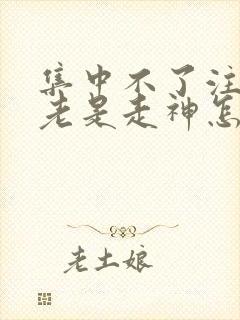 集中不了注
老是走神怎
老土娘